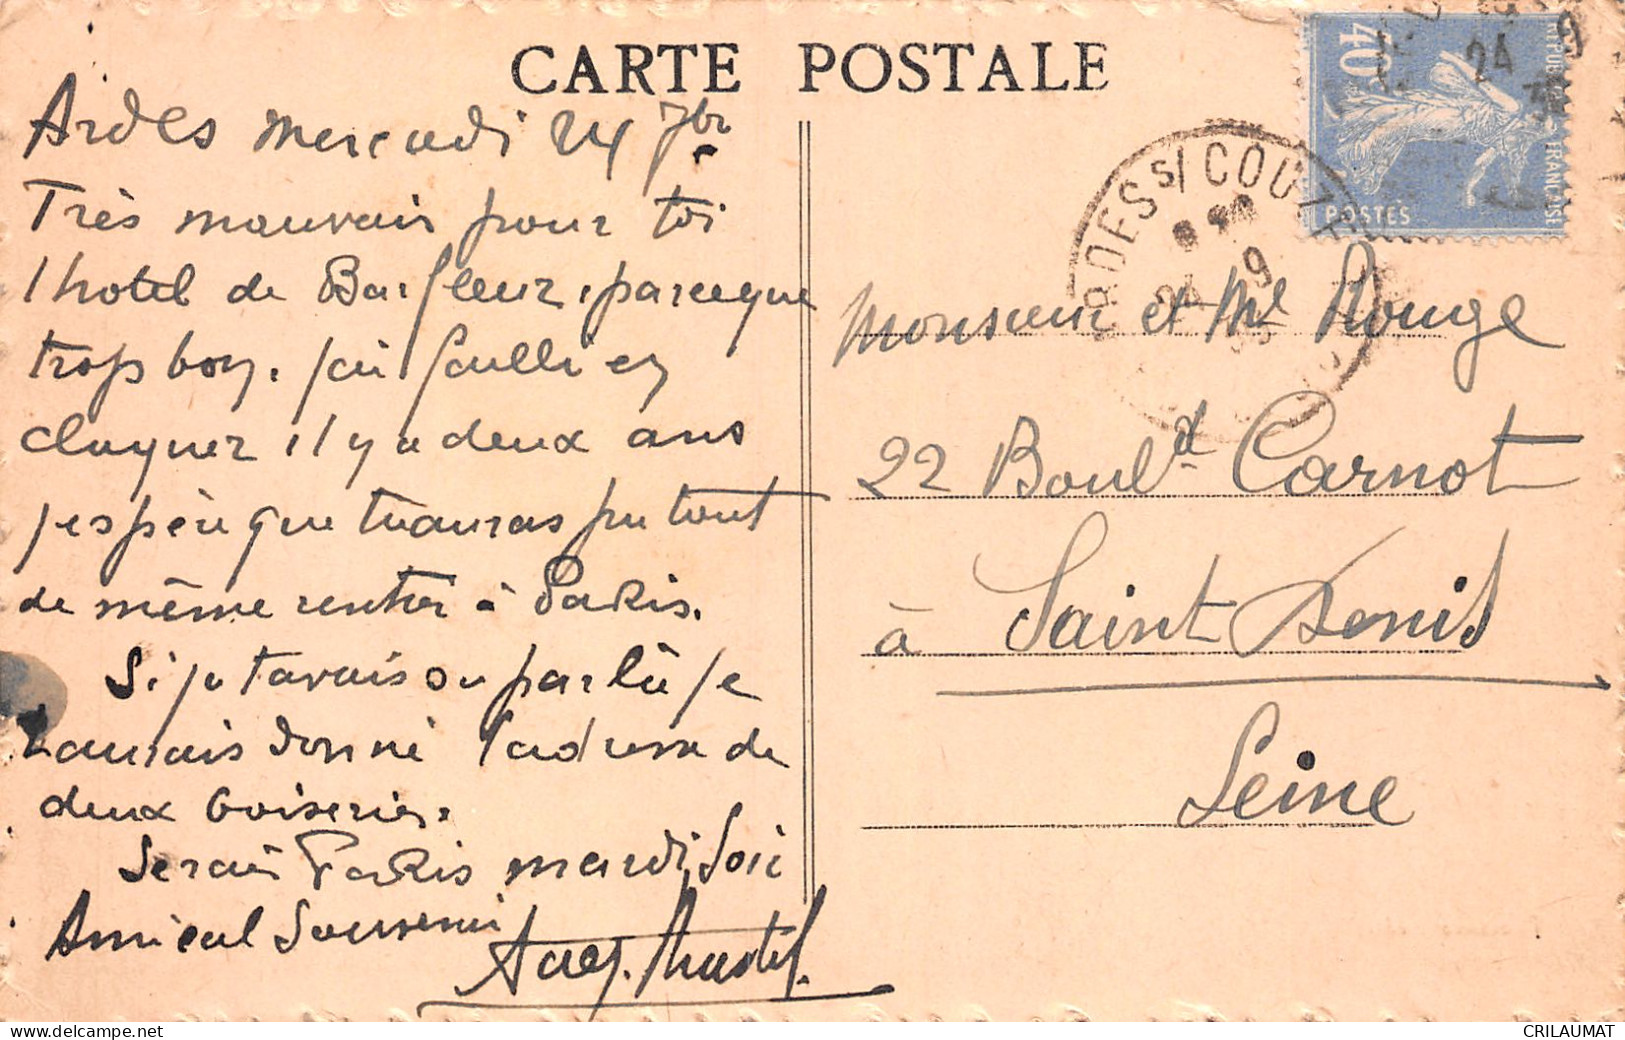 CARTE POSTALE
Ardes mercredi 24 7bre
Très mauvais pour toi
l'hotel de Barfleur, parceque
trop bon. j'ai failli en
claquer il y a deux ans
j'espère que tu auras pu tout
de même rentrer à Paris.
Si je t'avais su par là je
t'aurais donné l'adresse de
deux boiseries.
Serai Paris mardi soir
Amical Souvenir
Monsieur et Me Rouge
22 Bould Carnot
à Saint Denis
Seine
ARDES S/ COUZE
24 9
40
POSTES
REPUB FRANÇAISE
24 9
delcampe.net
CRILAUMAT